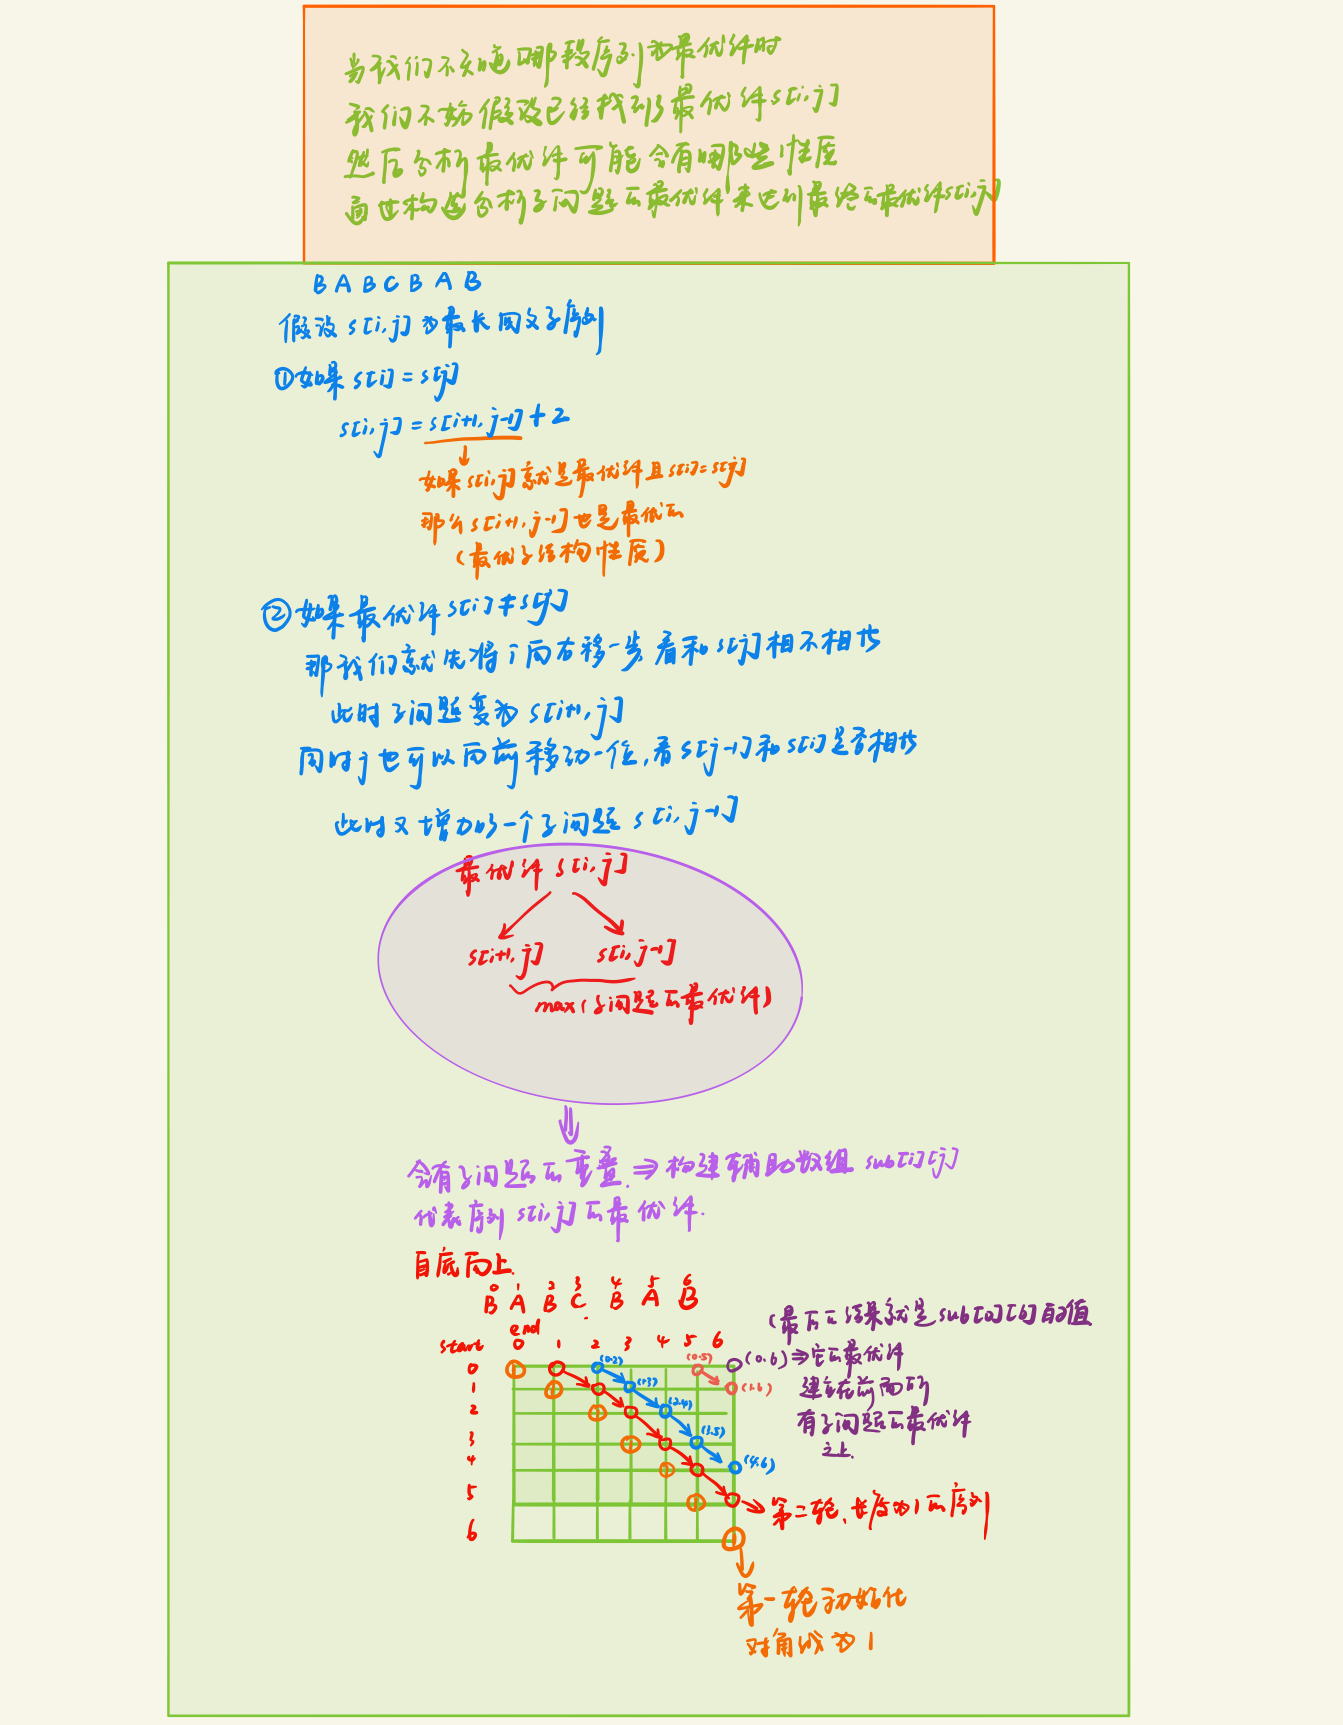 当我们不知道哪段序列为最优解时
我们不妨假设已经找到了最优解s[i,j]
然后分析最优解可能会有哪些性质
通过构造分析子问题的最优解来达到最终的最优解s[i,j]
B A B C B A B
假设s[i,j]为最长回文子序列
①如果s[i]=s[j]
s[i,j]=s[i+1,j-1]+2
如果s[i,j]就是最优解且s[i]=s[j]
那么s[i+1,j-1]也是最优的
(最优子结构性质)
②如果最优解s[i]≠s[j]
那我们就先将i向右移一步,看和s[j]相不相等
此时子问题变为s[i+1,j]
同时j也可以向前移动一位,看s[j-1]和s[i]是否相等
此时又增加了一个子问题s[i,j-1]
最优解s[i,j]
s[i+1,j] s[i,j-1]
max(子问题的最优解)
会有子问题的重叠.⇒构建辅助数组sub[i][j]
代表序列s[i,j]的最优解.
自底向上.
0 1 2 3 4 5 6
B A B C B A B
end
start 0 1 2 3 4 5 6
0
1
2
3
4
5
6
(0.2)
(1.3)
(2.4)
(3.5)
(4.6)
(0.5)
(1.6)
(最后的结果就是sub[0][6]的值
(0.6)⇒它的最优解
建立在前面的
有子问题的最优解
之上.
第二轮,长度为1的序列
第一轮初始化
对角线为1